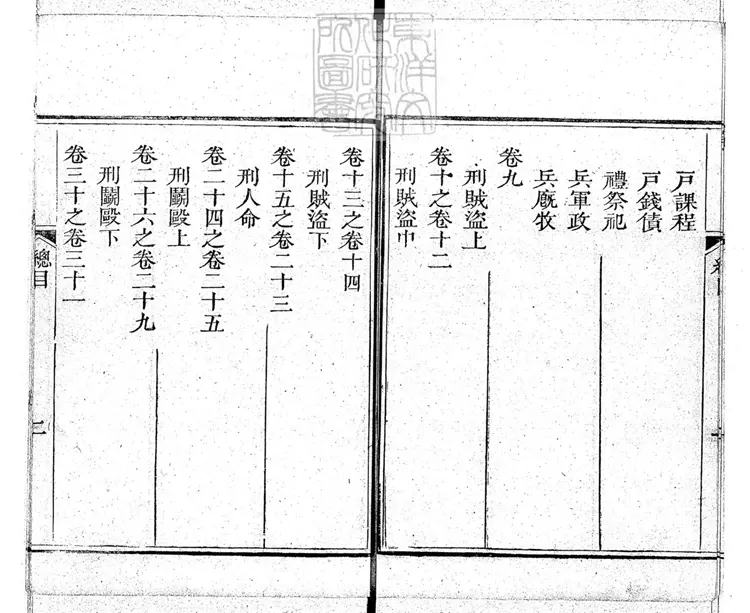 戶課程
戶錢債
禮祭祀
兵軍政
兵廐牧
卷九
刑賊盜上
卷十之卷十二
刑賊盜中
卷十三之卷十四
刑賊盜下
卷十五之卷二十三
刑人命
卷二十四之卷二十五
刑鬬毆上
卷二十六之卷二十九
刑鬬毆下
卷三十之卷三十一
總目
二